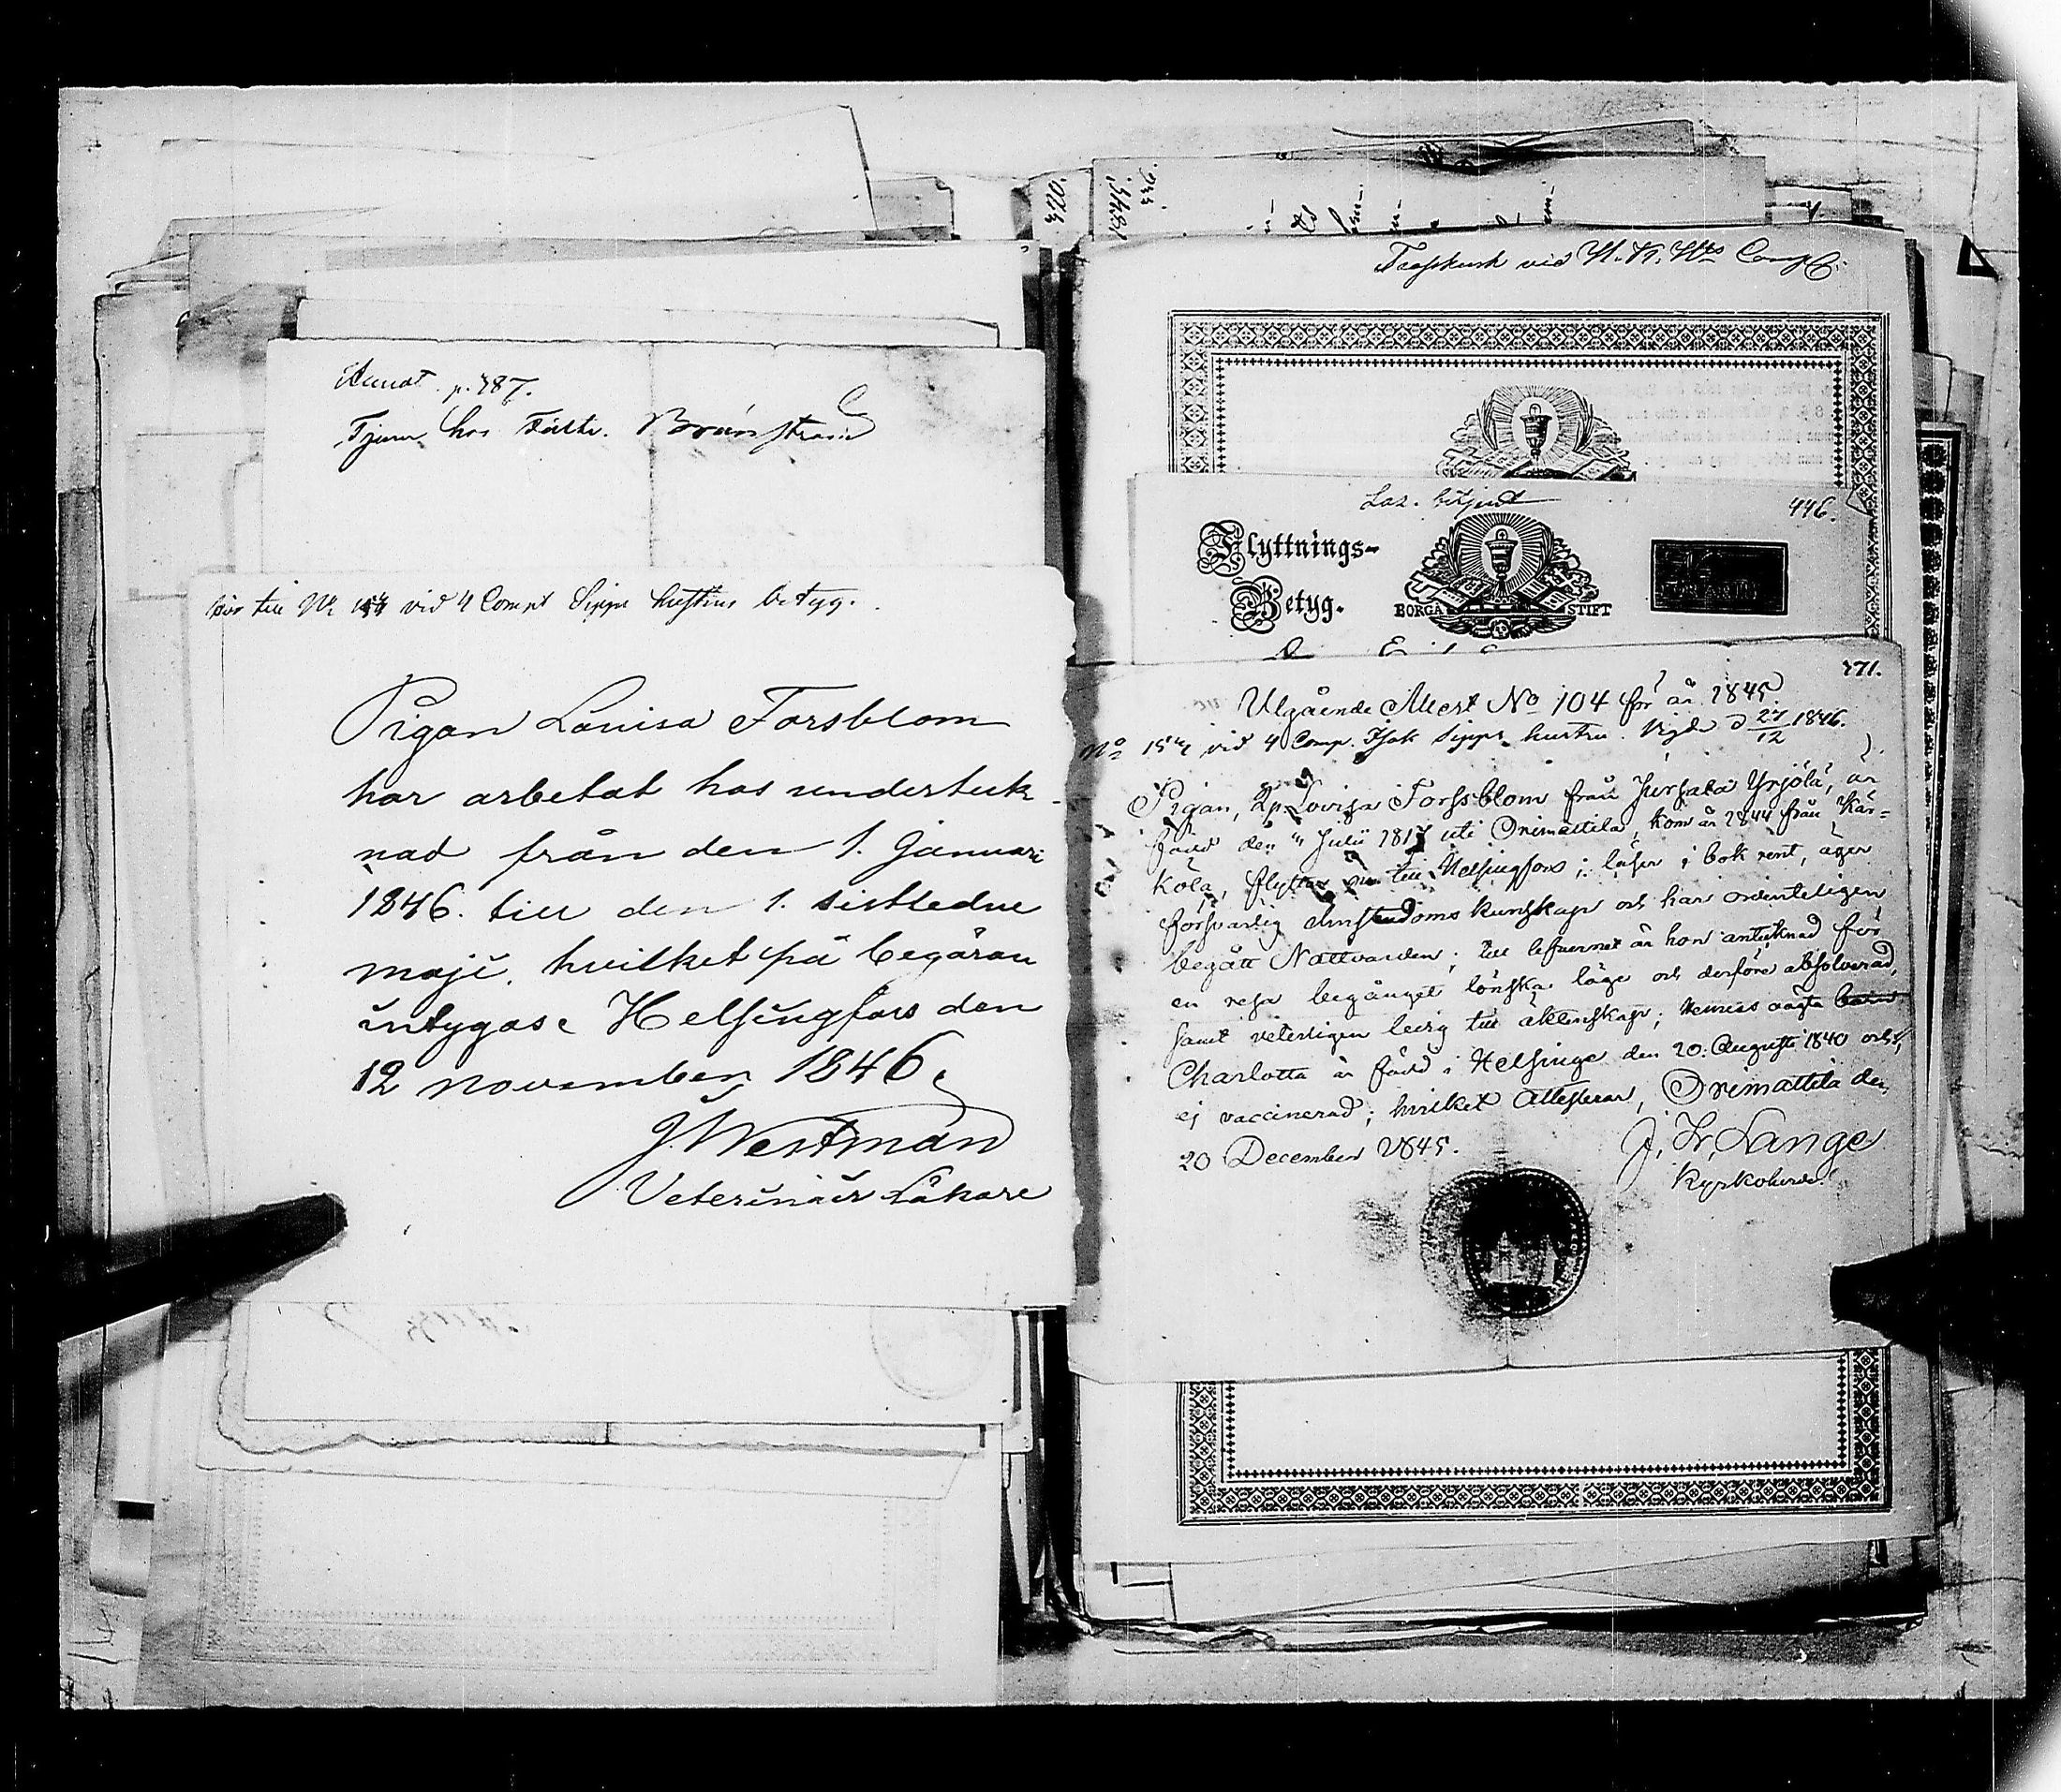 p. 787.
Tjenar hos
hör till No 154 vid 4 Compt Sipps hustrus betyg.
Pigan Lovisa Forsblom
har arbetat hos underteck-
nad från den 1. Januari
1846. till den 1. sistledne
maji, hvilket på begäran
intygas. Helsingfors den
12 november 1846.
J. Westman
Veterinair Läkare
Trosskusk vid
446.
Flyttnings-
Betyg.
BORGÅ STIFT
771.
Utgående Attest No 104 för år 1845
No 154 vid 4 Comp. Isak Sipps hustru. Vigde d 27/12 1846.
Pigan, Lovisa Forssblom från Jursala Yrjölä, är
född den " Julii 1817 uti Orimattila, kom år 1844 från Kär-
kölä, flyttar nu till Helsingfors; läser i bok rent, äger
försvarlig christendoms kunskap och har ordenteligen
begått Nattvarden; till lefvernet är hon antecknad för
en resa begånget lönska läge och derföre absolverad,
samt veterligen ledig till äktenskap; hennes oägta barn
Charlotta är född i Helsinge den 20: Augusti 1840 och
ej vaccinerad; hvilket attesterar, Orimattila den
20 December 1845.
J. Fr. Lange
Kyrkoherde.